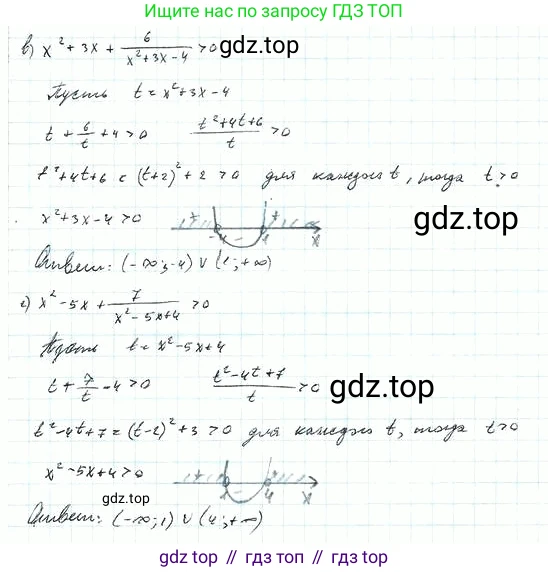 Ищите нас по запросу ГДЗ ТОП
в) x² + 3x + 6/(x²+3x-4) > 0
gdz.top
Пусть t = x²+3x-4
t + 6/t + 4 > 0 (t²+4t+6)/t > 0
t²+4t+6 = (t+2)²+2 > 0 для каждого t, тогда t > 0
x²+3x-4 > 0 + + -4 1 x
gdz.top
Ответ: (-∞; -4) ∪ (1; +∞)
г) x² - 5x + 7/(x²-5x+4) > 0
Пусть t = x²-5x+4
t + 7/t - 4 > 0 (t²-4t+7)/t > 0
gdz.top
t²-4t+7 = (t-2)²+3 > 0 для каждого t, тогда t > 0
x²-5x+4 > 0 + + 1 4 x
Ответ: (-∞; 1) ∪ (4; +∞)
gdz.top // гдз.top // гдз.топ